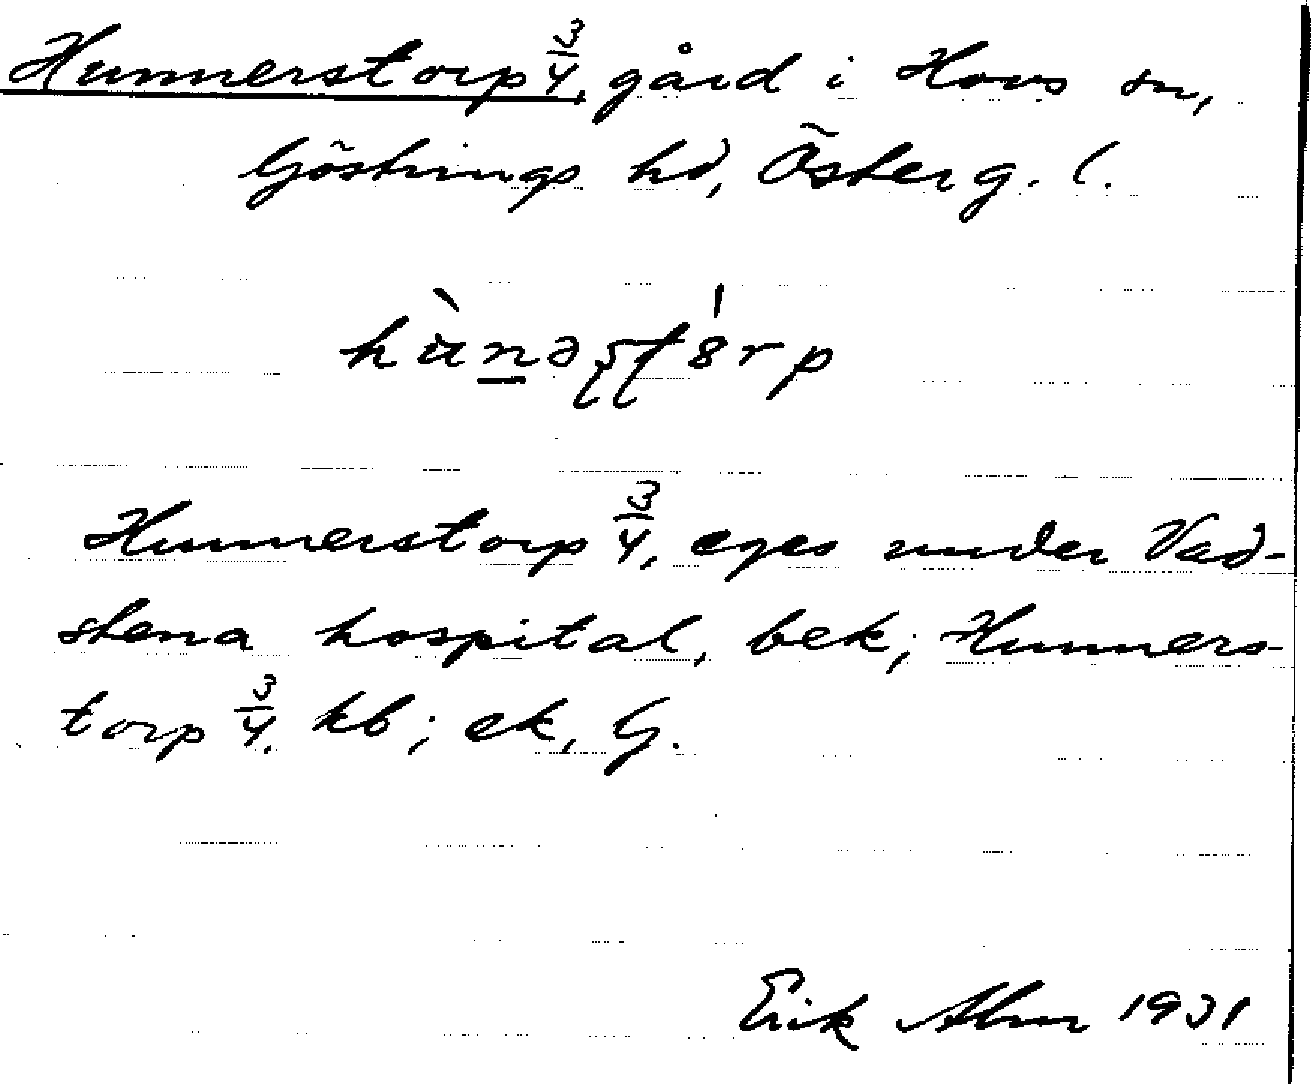 Hunnerstorp 3/4, gård i Hovs sn,
Göstrings hd, Österg. l.
Hunnerstorp 3/4, eges under Vad-
stena hospital, bek; Hunners-
torp 3/4, kb; ek, G.
Erik Abm 1931